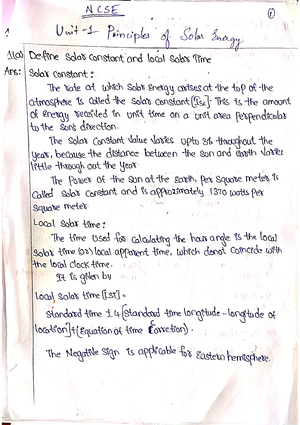 NCSE
①
1
Unit-1 Principles of Solar Energy
1(a) Define Solar Constant and local Solar Time
Ans: Solar Constant:
The rate at which Solar Energy arrives at the top of the
atmosphere is called the Solar Constant [Isc]. This is the amount
of Energy received in unit time on a unit area perpendicular
to the sun's direction.
The Solar Constant Value Varies upto 3% throughout the
Year, because the distance between the sun and Earth Varies
little through out the Year.
The Power of the Sun at the Earth, Per Square meter is
Called Solar Constant and is approximately 1370 watts Per
Square meter
Local Solar time:
The time Used for Calculating the hour angle is the local
Solar time (or) local apparent time, which donot Coincide with
the local clock time.
It is given by
Local Solar time [LST] =
Standard time ± 4 [Standard time longitude - longitude of
location] + (Equation of time Correction).
The Negative Sign is applicable for Eastern hemisphere.